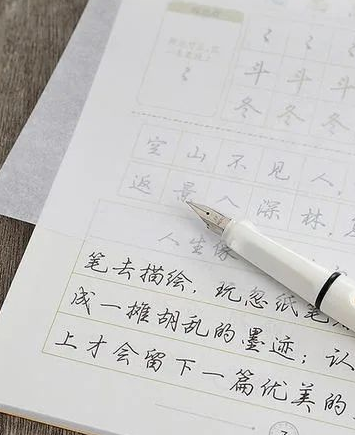 斗 斗 斗
冬 冬 冬
空山不见人,
返景入深林,
人生像
笔去描绘,玩忽纸笔
成一摊胡乱的墨迹;认
上才会留下一篇优美的